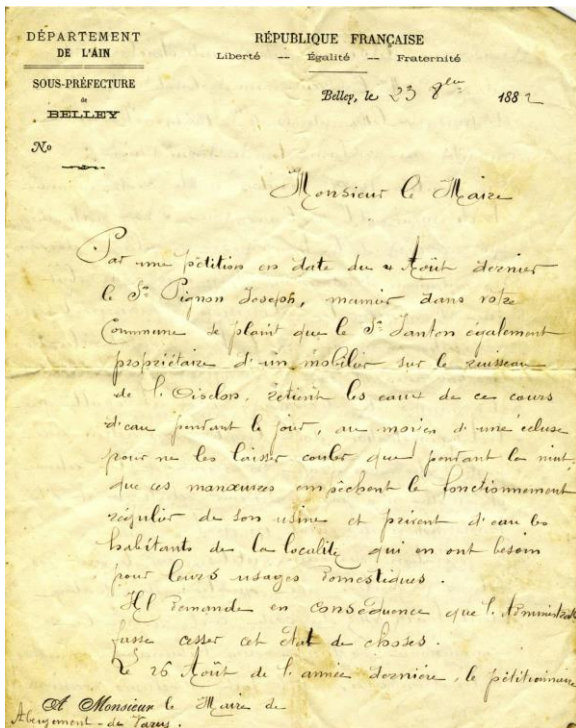 DÉPARTEMENT
DE L'AIN
SOUS-PRÉFECTURE
de
BELLEY
No
RÉPUBLIQUE FRANÇAISE
Liberté — Égalité — Fraternité
Belley, le 23 8bre 1882
Monsieur le Maire
Par une pétition en date du 4 Août dernier
le Sr Pignon Joseph, meunier dans votre
Commune se plaint que le Sr Janton également
propriétaire d'un mobilier sur le ruisseau
de l'Oiselon, retient les eaux de ce cours
d'eau pendant le jour, au moien d'une écluse
pour ne les laisser couler que pendant la nuit,
que ces manœuvres empêchent le fonctionnement
régulier de son usine et privent d'eau les
habitants de la localité qui en ont besoin
pour leurs usages domestiques.
Il demande en conséquence que l'Administrat
fasse cesser cet état de choses.
Le 26 Août de l'année dernière, le pétitionnaire
A Monsieur le Maire de
Abergement-de-Varey.